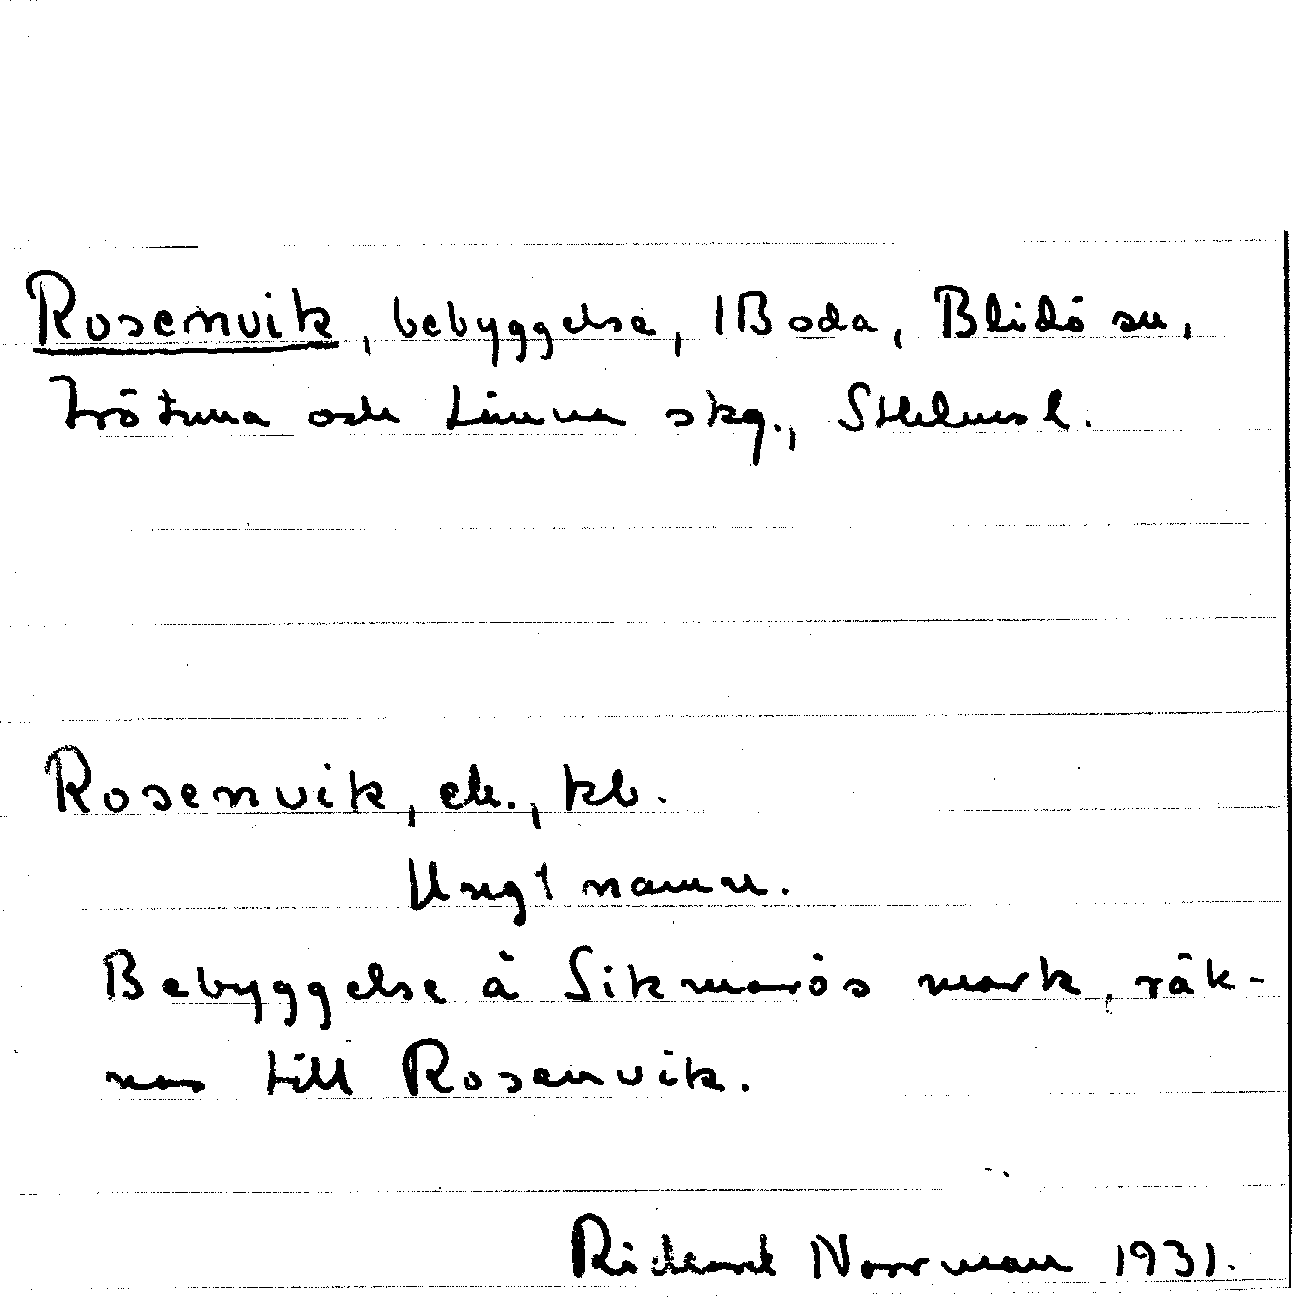 Rosenvik, bebyggelse, 1 Boda, Blidö sn,
Frötuna och Länna skg., Sthlms l.
Rosenvik, ek., kb.
Ungt namn.
Bebyggelse å Sikmarös mark, räk-
nas till Rosenvik.
Rickard Norrman 1931.